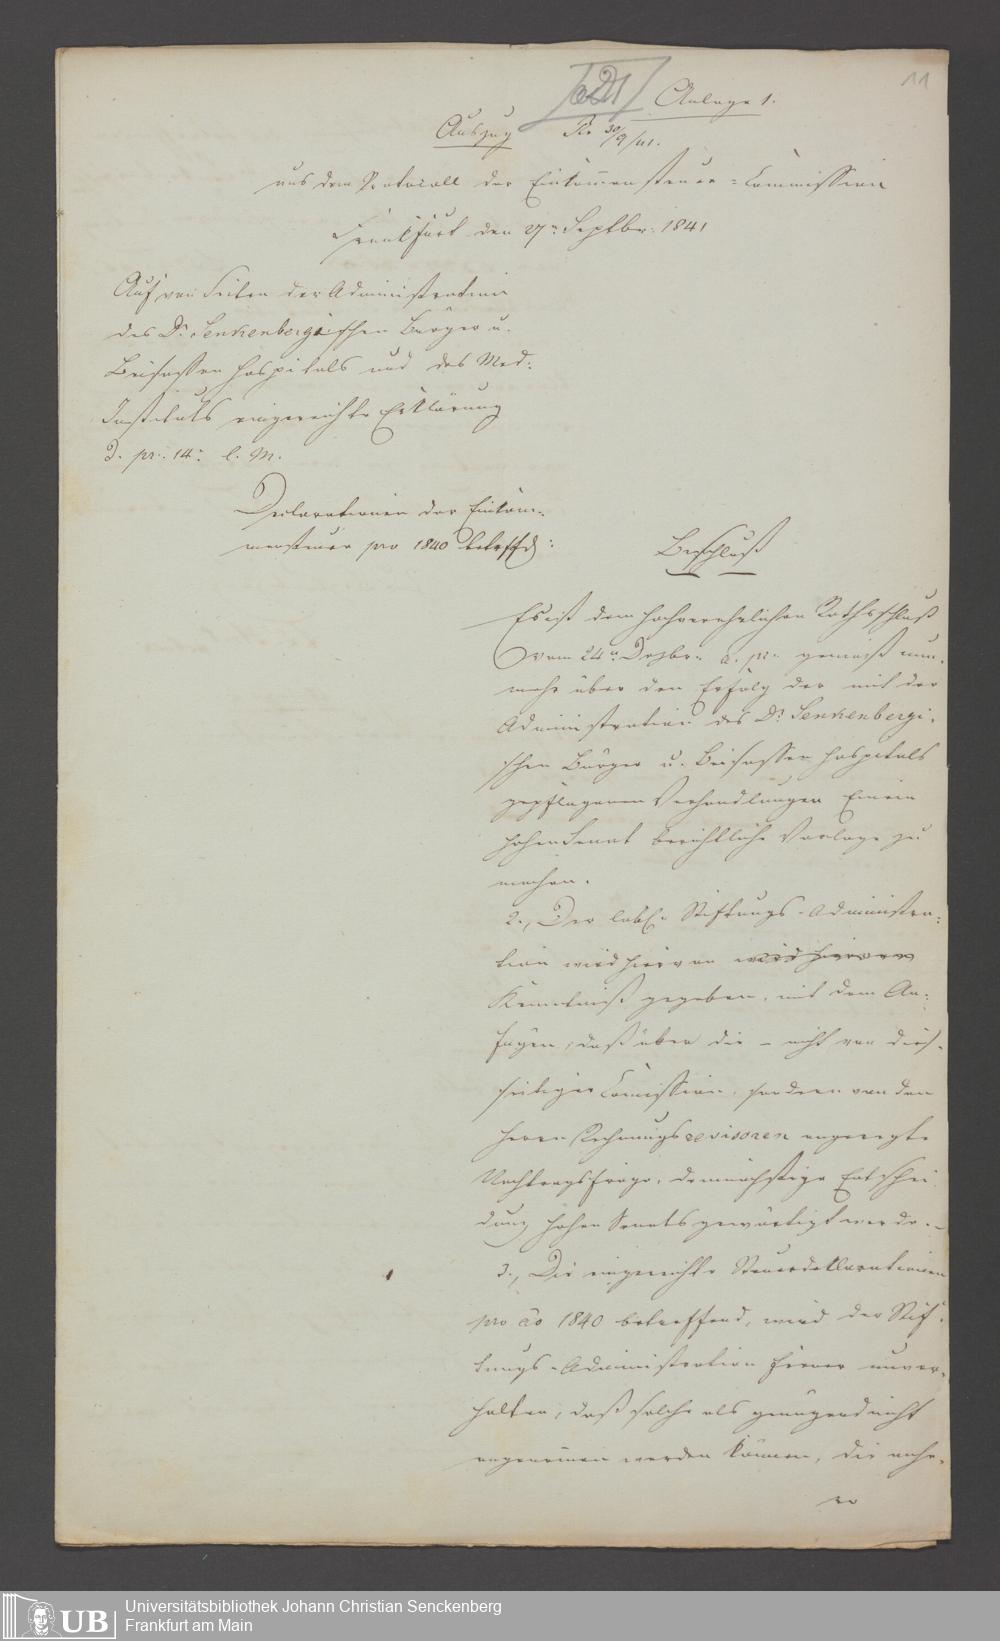 11
Anlage 1.
Auszug Pr. 30/9/41.
aus dem Protocoll der Einkommensteuer-Commission
Frankfurt den 27n Septbr. 1841
Auf von Seiten der Administration
des Dr. Senkenbergischen Bürger u.
Beisassen Hospitals und des Med:
Instituts eingereichte Erklärung
d. pr. 14n l. M.
Declarationen der Einkom-
mensteuer pro 1840 betreffd:
Beschluß
Es ist dem hochverehrlichen Rathsschluß
vom 24n Dezbr. a. pr. gemäß nun-
mehr über den Erfolg der mit der
Administration des Dr. Senkenbergi-
schen Bürger u. Beisassen Hospitals
gepflogenen Verhandlungen Einem
hohen Senat berichtliche Vorlage zu
machen.
2., Der löbl. Stiftungs-Administra-
tion wird hiervon wird hiervon
Kenntniß gegeben, mit dem An-
fügen, daß über die – nicht von dies-
seitiger Comission, sondern von den
Herrn Rechnungsrevisoren angeregte
Nachtragsfrage, demnächstige Entschei-
dung hohen Senats gewärtigt werde.–
3., Die eingereichte Steuerdeklarationen
pro ao 1840 betreffend, wird der Stif-
tungs-Administration ferner unver-
halten, daß solche als genügend nicht
angenommen werden können, die
Universitätsbibliothek Johann Christian Senckenberg
Frankfurt am Main
UB